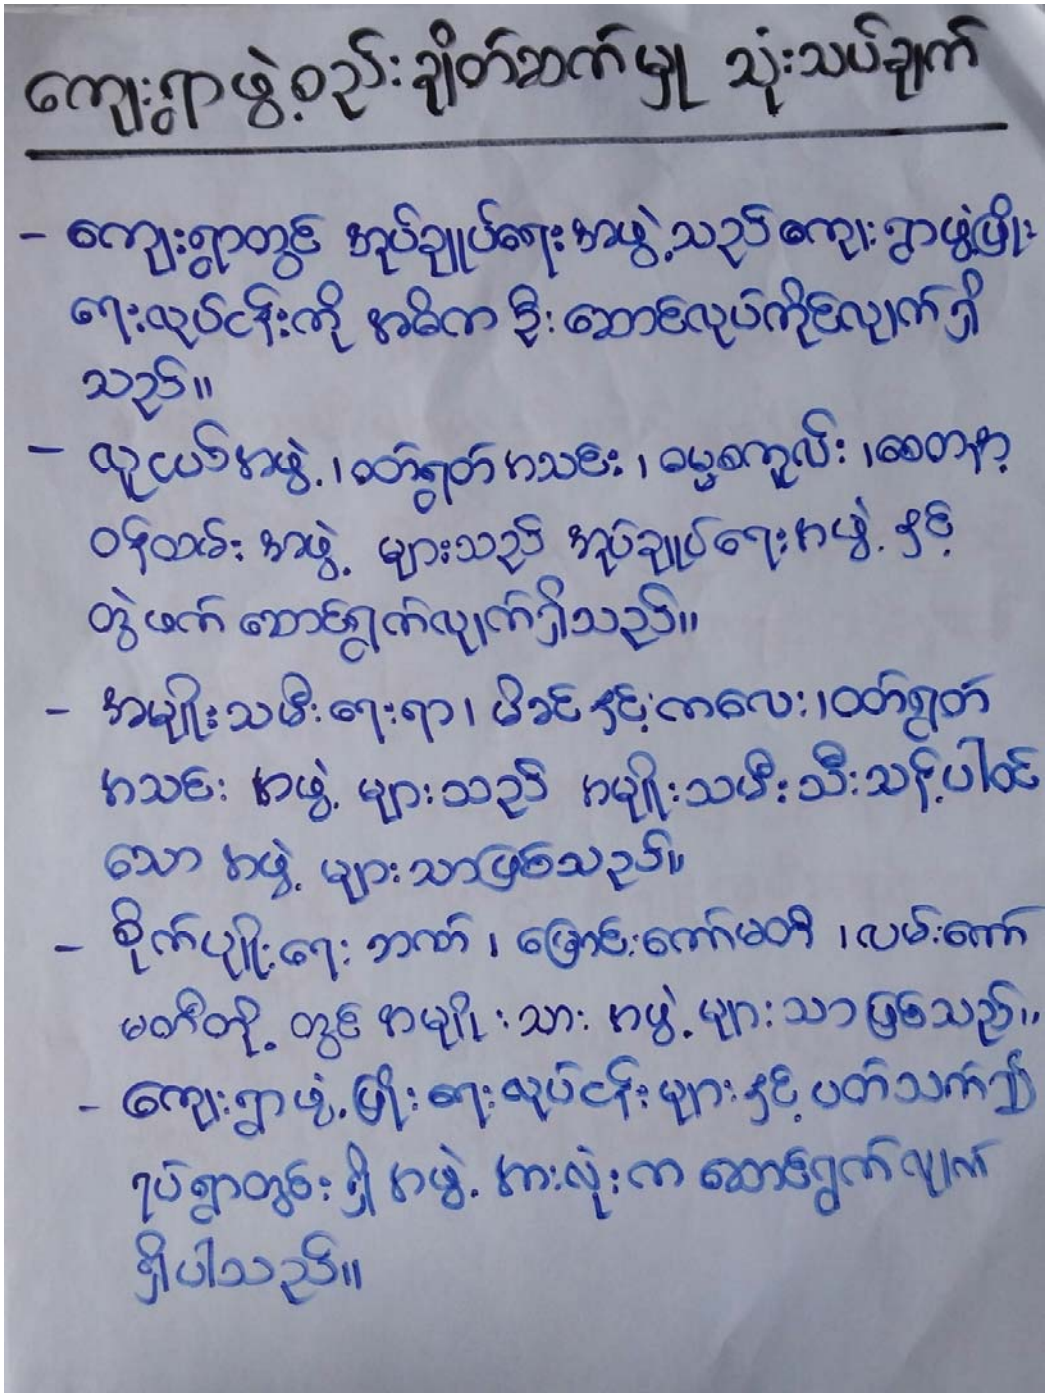 ကျေးရွာဖွဲ့စည်းချိတ်ဆက်မှု သုံးသပ်ချက်
- ကျေးရွာတွင် အုပ်ချုပ်ရေးအဖွဲ့သည် ကျေးရွာဖွံ့ဖြိုး
ရေးလုပ်ငန်းကို အဓိက ဦးဆောင်လုပ်ကိုင်လျက်ရှိ
သည်။
- လူငယ်အဖွဲ့၊ ဝတ်ရွတ်အသင်း၊ ဓမ္မစကူးလ်၊ စေတနာ့
ဝန်ထမ်းအဖွဲ့ များသည် အုပ်ချုပ်ရေးအဖွဲ့ နှင့်
တွဲဖက် ဆောင်ရွက်လျက်ရှိသည်။
- အမျိုးသမီးရေးရာ၊ မိခင်နှင့်ကလေး၊ ဝတ်ရွတ်
အသင်း အဖွဲ့ များသည် အမျိုးသမီးသီးသန့်ပါဝင်
သော အဖွဲ့ များသာဖြစ်သည်။
- စိုက်ပျိုးရေး ဘဏ်၊ မြောင်းကော်မတီ၊ လမ်းကော်
မတီတို့ တွင် အမျိုးသား အဖွဲ့များသာဖြစ်သည်။
- ကျေးရွာဖွံ့ဖြိုးရေးလုပ်ငန်းများနှင့် ပတ်သက်၍
ရပ်ရွာတွင်းရှိ အဖွဲ့ အားလုံးက ဆောင်ရွက်လျက်
ရှိပါသည်။